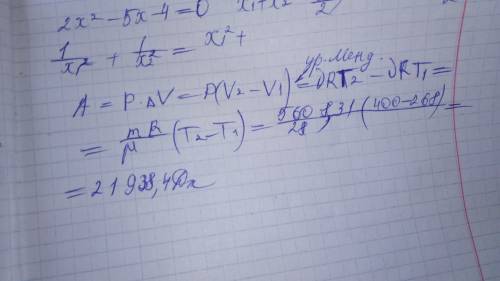 2x² - 5x - 4 = 0   x₁ + x₂   5/2
1/x₁² + 1/x₂² = x₁² +
A = P·ΔV = P(V₂ - V₁) ур. Менд. = νRT₂ - νRT₁ =
= mR/μ (T₂ - T₁) = 560·8,31(400-268)/28 =
= 21938,4 Дж